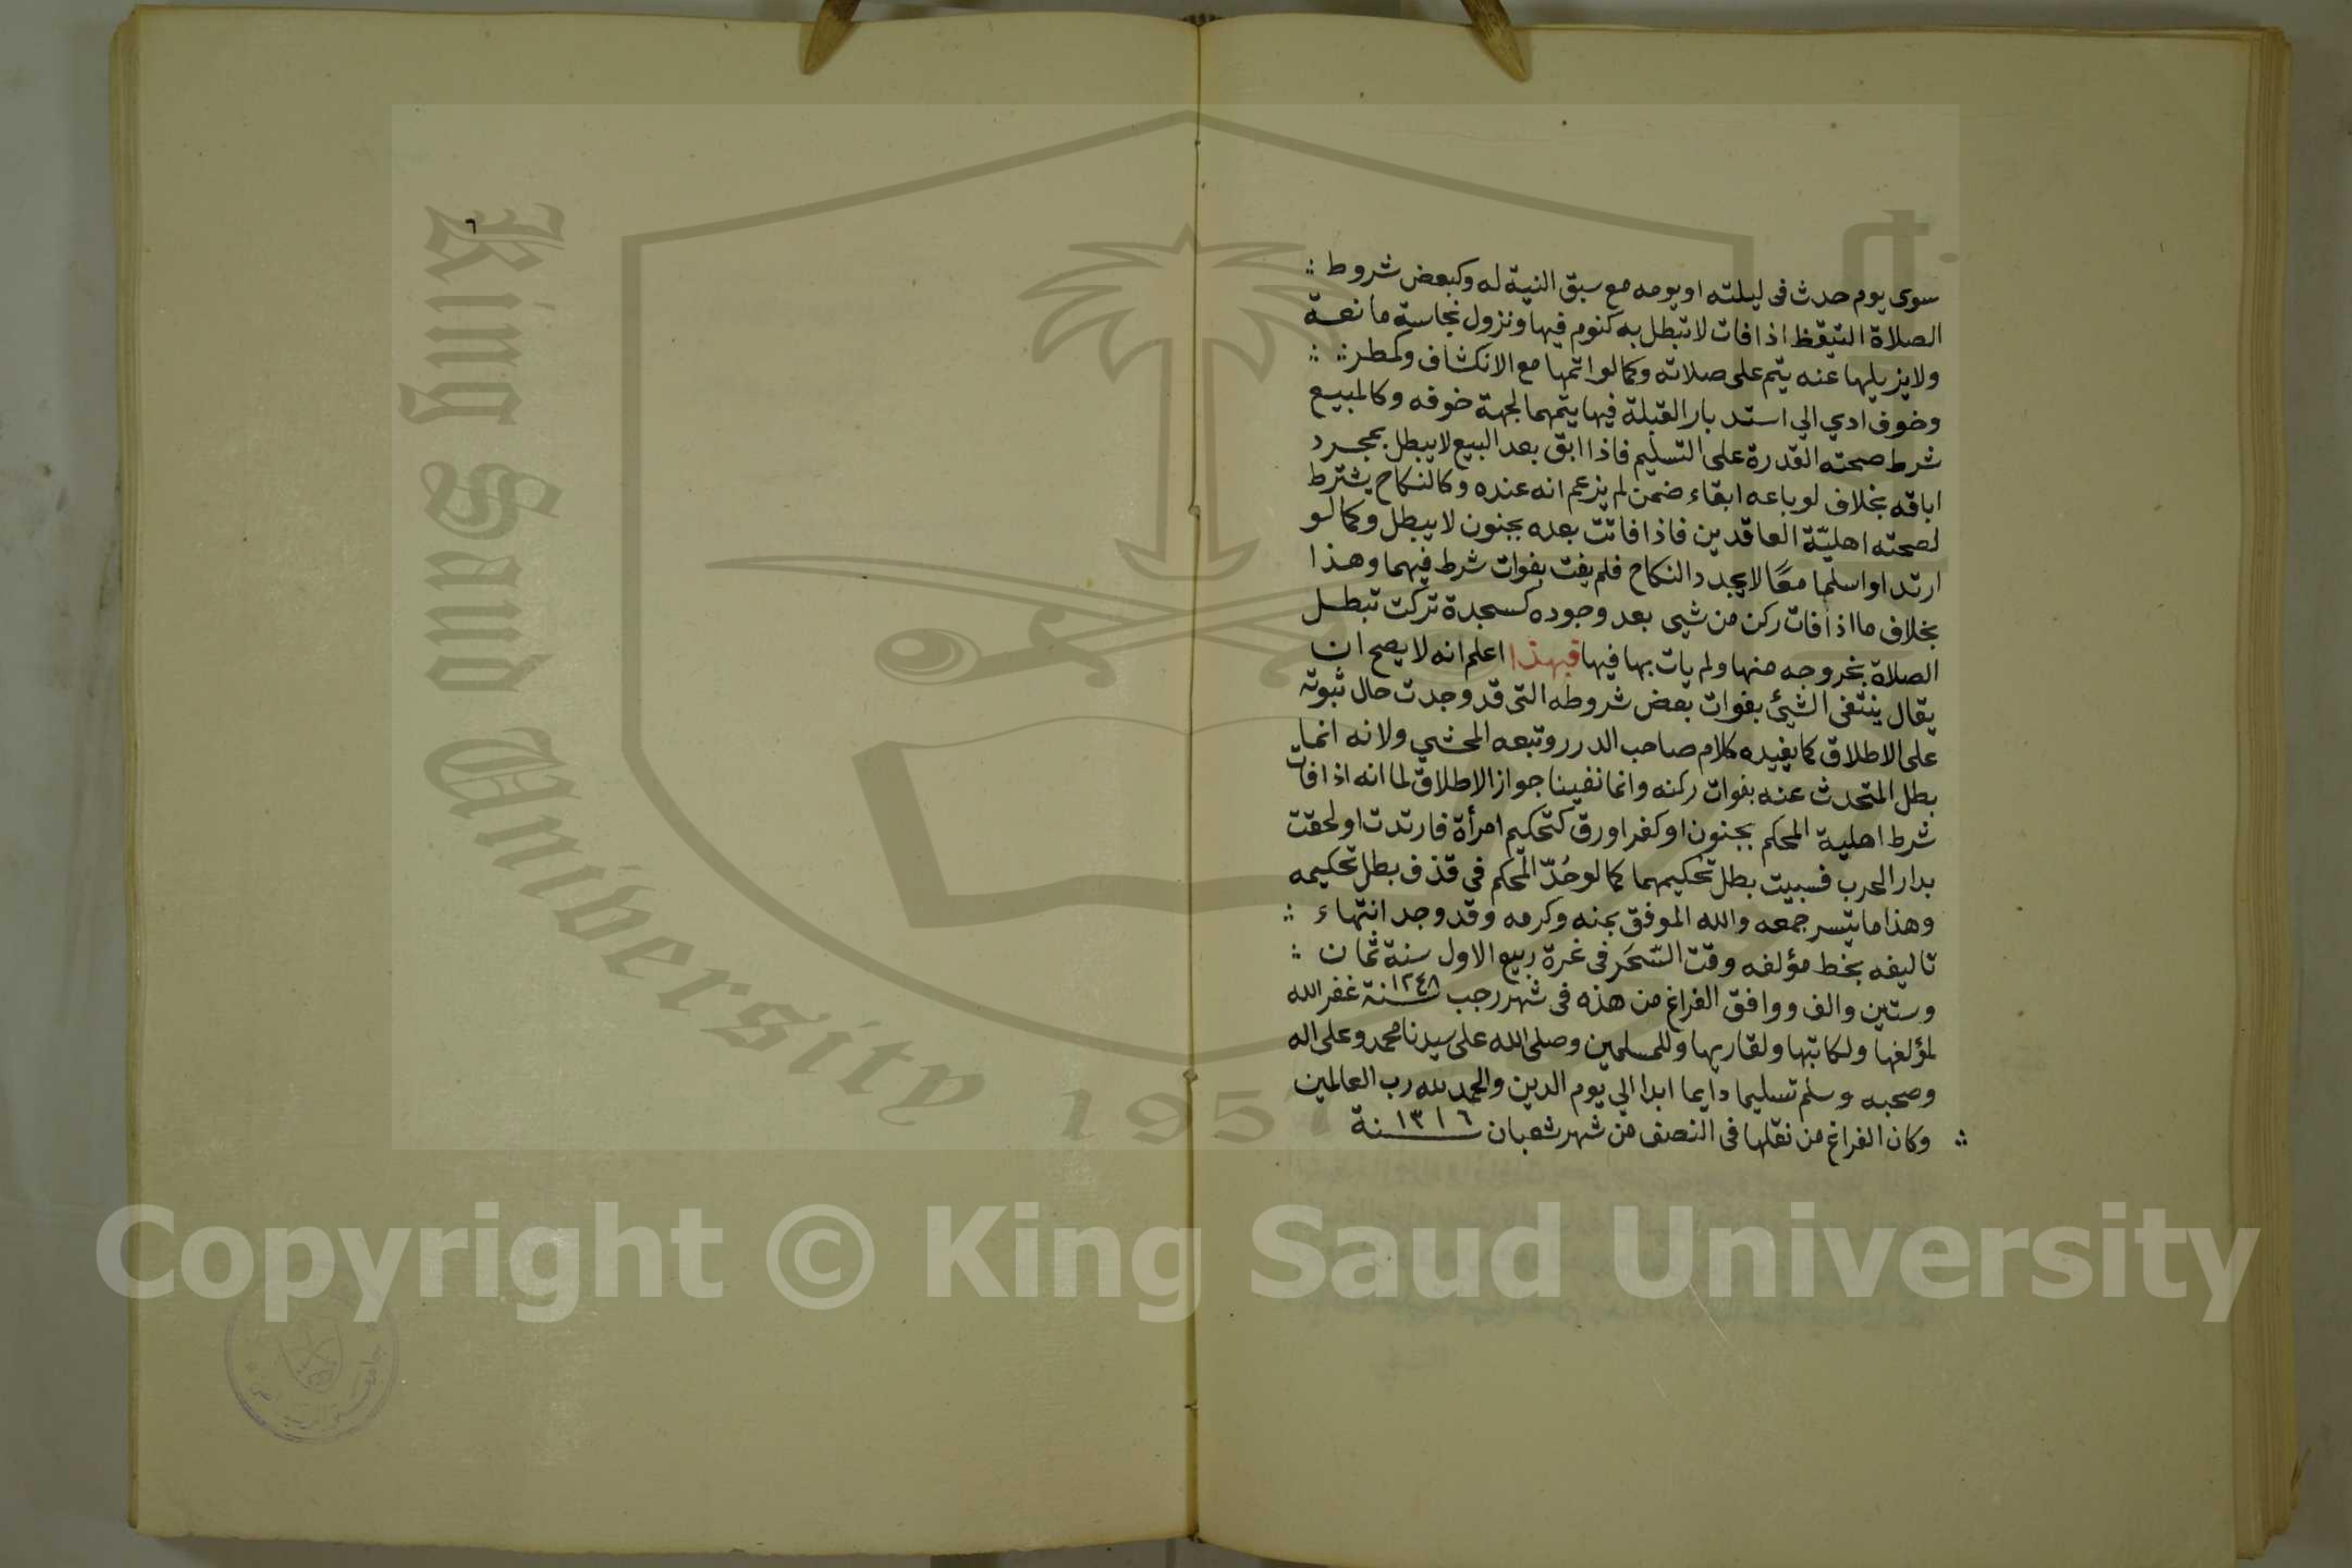 سوى يوم حدث فى ليلته او يومه مع سبق النية له وكبعض شروط
الصلاة التيقظ اذا فات لا تبطل به كنوم فيها ونزول نجاسة مانعة
ولا يزيلها عنه يتم على صلاته وكما لو اتمها مع الانكشاف وكمطر
وخوف ادي الي استدبار القبلة فيها يتمهما لجهة خوفه وكالمبيع
شرط صحته القدرة على التسليم فاذا ابق بعد البيع لا يبطل بمجرد
اباقه بخلاف لو باعه ابقاء ضمن لم يزعم انه عنده وكالنكاح يشترط
لصحته اهليّة العاقدين فاذا فاتت بعده بجنون لا يبطل وكما لو
ارتد او اسلما معًا لا يجدد النكاح فلم يفت بفوات شرط فيهما وهذا
بخلاف ما اذا فات ركن من شيى بعد وجوده كسجدة تركت تبطل
الصلاة بخروجه منها ولم يات بها فيها فبهذا اعلم انه لا يصح ان
يقال ينتفى الشيئ بفوات بعض شروطه التى قد وجدت حال ثبوته
على الاطلاق كما يفيده كلام صاحب الدرر وتبعه المحشي ولانه انما
بطل المتحدث عنه بفوات ركنه وانما نفينا جواز الاطلاق لما انه اذا فات
شرط اهلية المحكم بجنون او كفر اورق كتحكيم امرأة فارتدت او لحقت
بدار الحرب فسبيت بطل تحكيمهما كما لو حُدّ المحكم فى قذف بطل تحكيمه
وهذا ما تيسر جمعه والله الموفق بمنه وكرمه وقد وجد انتهاء
تاليفه بخط مؤلفه وقت السّحَر فى غرة ربيع الاول سنة ثمان
وستين والف ووافق الفراغ من هذه فى شهر رجب سنة ١٢٤٨ غفر الله
لمؤلفها ولكاتبها ولقاريها وللمسلمين وصلى الله على سيدنا محمد وعلى اله
وصحبه وسلم تسليما دايما ابدا الي يوم الدين والحمد لله رب العالمين
وكان الفراغ من نقلها فى النصف من شهر شعبان سنة ١٣١٦
٦
King Saud University
1957
Copyright © King Saud University